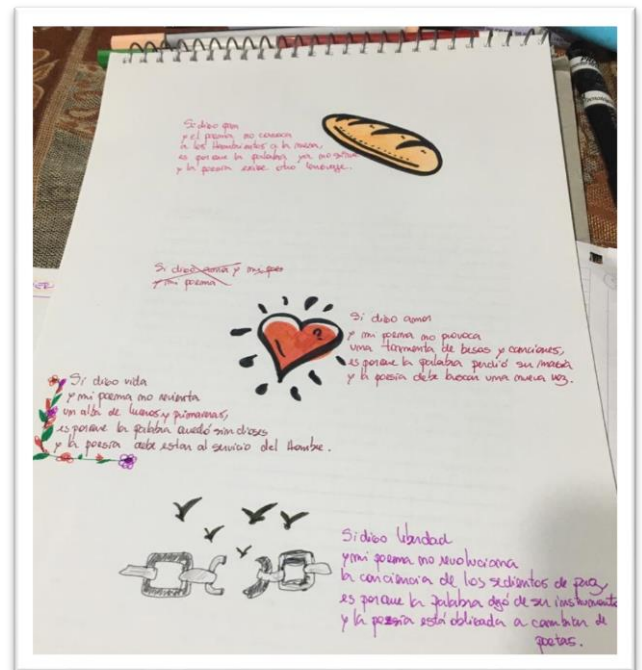 Si digo pan
y el poema no convoca
a los hambrientos a la mesa,
es porque la palabra ya no sirve
y la poesía exige otro lenguaje.
Si digo amor y mi
y mi poema
Si digo amor
y mi poema no provoca
una tormenta de besos y canciones,
es porque la palabra perdió su magia
y la poesía debe buscar una nueva voz.
Si digo vida
y mi poema no revienta
un alba de luceros y primaveras,
es porque la palabra quedó sin dioses
y la poesía debe estar al servicio del Hombre.
Si digo libertad
y mi poema no revoluciona
la conciencia de los sedientos de paz,
es porque la palabra dejó de ser instrumento
y la poesía está obligada a cambiar de
poetas.